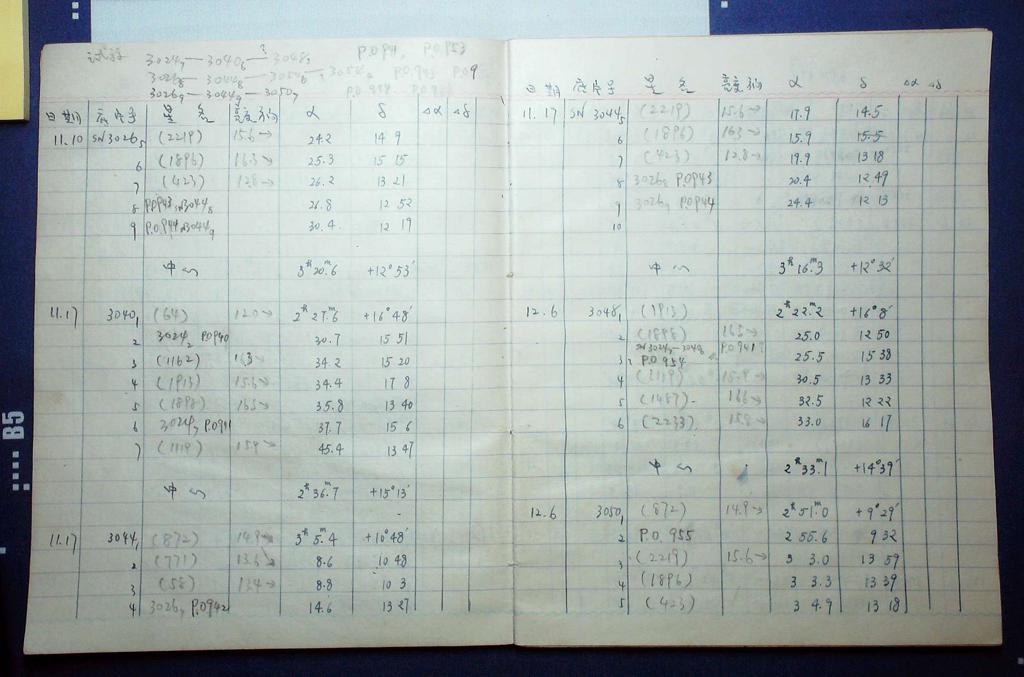 3024₇—3040₆—3048₃ P.O941, P.O953
3026₈—3044₈ P.O943
3026₉—3044₉—3050₇
日期 底片号 星名 亮度 α δ Δα Δδ
11.10 SN3026₅ (2219) 15.6→ 24.2 14 9
6 (1896) 16.3→ 25.3 15 15
7 (423) 12.8→ 26.2 13 21
8 P.O943 SN3044₈ 26.8 12 52
9 P.O944 SN3044₉ 30.4 12 19
中心 3ʰ20ᵐ.6 +12°53′
11.17 3040₁ (64) 12.0→ 2ʰ27ᵐ.6 +16°48′
2 3024₂ P.O940 30.7 15 51
3 (1162) 16.3→ 34.2 15 20
4 (1913) 15.6→ 34.4 17 8
5 (1898) 16.5→ 35.8 13 40
6 3024₇ P.O941 37.7 15 6
7 (1119) 15.9→ 45.4 13 47
中心 2ʰ36ᵐ.7 +15°13′
11.17 3044₁ (872) 14.9→ 3ʰ5ᵐ.4 +10°48′
2 (771) 13.3→ 8.6 10 48
3 (58) 13.4→ 8.8 10 3
4 3026₇ P.O942 14.6 13 27
日期 底片号 星名 亮度 α δ Δα Δδ
11.17 SN3044₅ (2219) 15.6→ 17.9 14.5
6 (1896) 16.3→ 15.9 15.5
7 (423) 12.8→ 19.9 13 18
8 3026₈ P.O943 20.4 12 49
9 3026₉ P.O944 24.4 12 13
10
中心 3ʰ16ᵐ.3 +12°32′
12.6 3048₁ (1913) 2ʰ22ᵐ.2 +16°8′
2 (1898) 16.5→ 25.0 12 50
SN3024₇—3048 P.O941?
3 P.O954 25.5 15 38
4 (1119) 15.9→ 30.5 13 33
5 (1487) 16.6→ 32.5 12 22
6 (2233) 15.8→ 33.0 16 17
中心 2ʰ33ᵐ.1 +14°39′
12.6 3050₁ (872) 14.9→ 2ʰ51ᵐ.0 +9°29′
2 P.O.955 2 55.6 9 32
3 (2219) 15.6→ 3 3.0 13 59
4 (1896) 3 3.3 13 39
5 (423) 3 4.9 13 18
B5